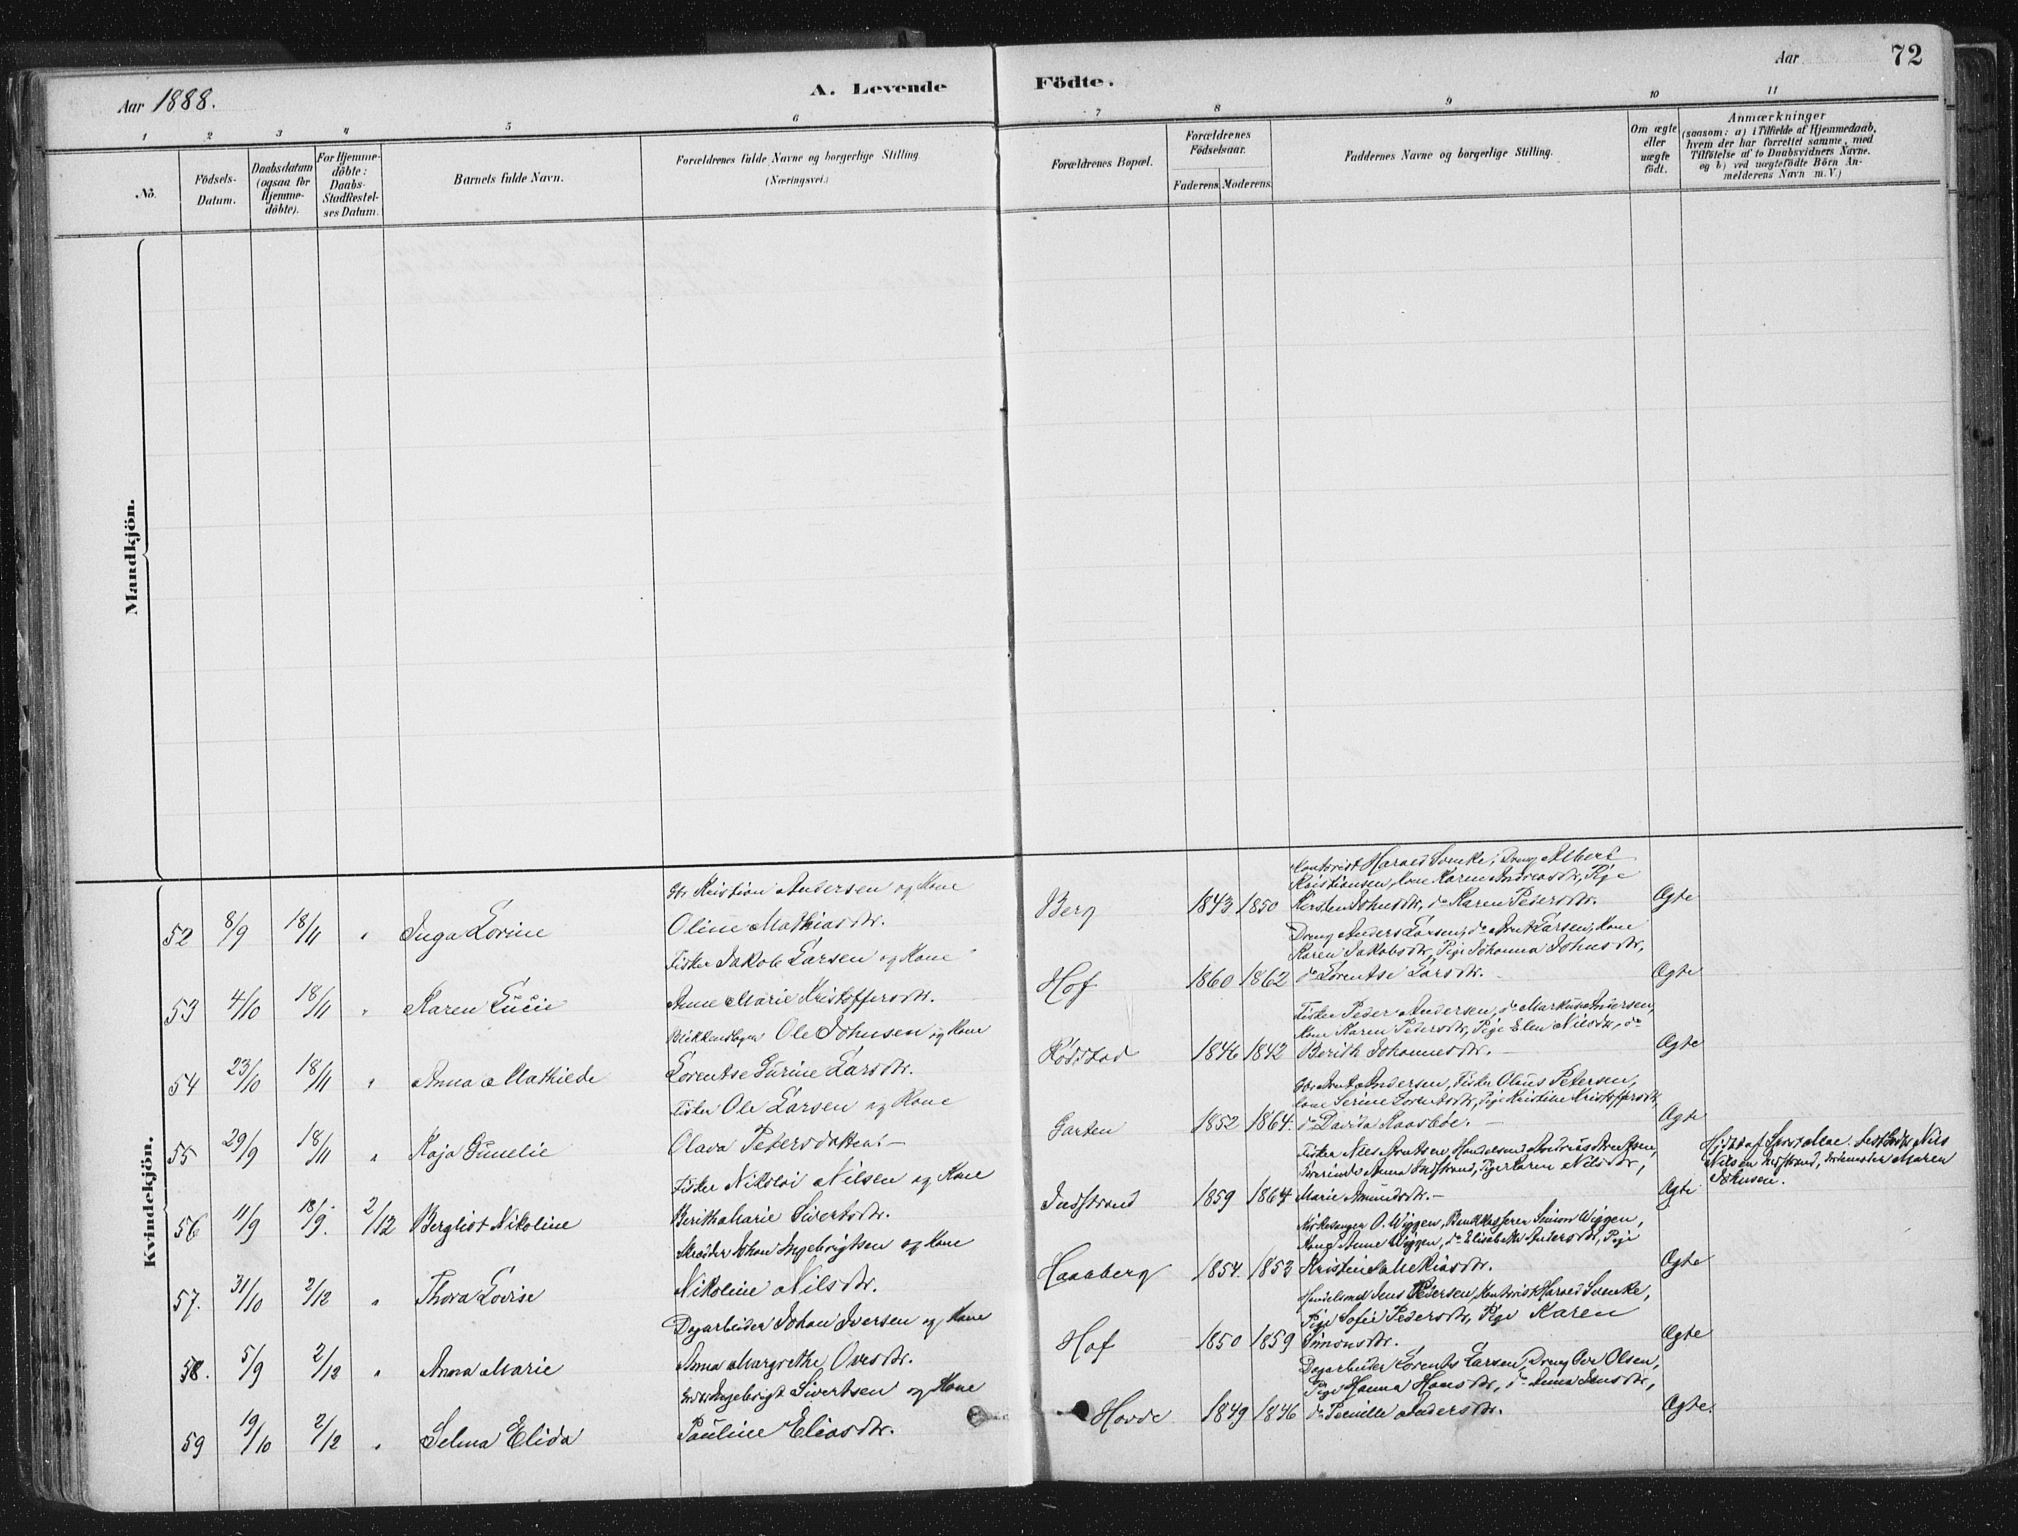 Aar 1888.
A. Levende Födte.
Aar
72
1 2 3 4 5 6 7 8 9 10 11
No.
Födsels-Datum.
Daabsdatum (ogsaa for Hjemme-döbte).
For Hjemme-döbte: Daabs-Stadfæstel-ses Datum.
Barnets fulde Navn.
Forældrenes fulde Navne og borgerlige Stilling. (Næringsvei.)
Forældrenes Bopæl.
Forældrenes Födselsaar.
Faderens. Moderens.
Faddernes Navne og borgerlige Stilling.
Om ægte eller uægte födt.
Anmærkninger
(saasom: a) i Tilfælde af Hjemmedaab, hvem der har forrettet samme, med Tilföielse af to Daabsvidners Navne. og b) ved uægtefödte Börn An-melderens Navn m. V.)
Mandkjön.
Kvindekjön.
52 8/9 18/11 " Inga Lovine
Kristian Andersen og Kone
Oline Mathiasdtr.
Berg 1843 1850
Kontorist Harald Svenke, Dreng Albert
Kristiansen, Kone Karen Andreasdtr, Pige
Kersten Johnsdtr, do Karen Pedersdtr.
Ægte
53 4/10 18/11 " Karen Lucie
Fisker Jakob Larsen og Kone
Anne Marie Kristoffersdtr.
Hof 1860 1862
Dreng Anders Larsen, do Arnt Larsen, Kone
Karen Jakobsdtr, Pige Johanna Johnsdtr,
do Lorentse Larsdtr.
Ægte
54 23/10 18/11 " Anna Mathilde
Blikkenslager Ole Johnsen og Kone
Lorentse Gurine Larsdtr.
Rödstad 1846 1842
Fisker Peder Andersen, do Markus Andersen,
Kone Karen Pedersdtr, Pige Elen Nilsdtr, do
Berith Johannesdtr.
Ægte
55 29/9 18/11 " Kaja Gunelie
Fisker Ole Larsen og Kone
Olava Petersdatter
Garten 1852 1864.
Arnt Andersen, Fisker Olaus Petersen,
Kone Serine Lorentsdtr, Pige Kristine Kristoffersdtr,
do Davida Raasböe.
Ægte
56 11/9 18/9. 2/12 Bergliot Nikoline
Fisker Nikolai Nilsen og Kone
Beritha Marie Sivertsdtr.
Indstrand 1859 1864
Fisker Nils Arntsen, Handelsmd Andreas Arentsen,
Anna Indstrand, Pige Karen Nilsdtr,
Marie Amundsdtr.
Ægte
Hjdbt af Nils
Nilsen Indstrand, Maren
Johnsen.
57. 31/10 2/12 " Thora Lovise
Skræder Johan Ingebrigtsen og Kone
Nikoline Nilsdtr.
Haaaberg 1854. 1853
Kirkesanger O. Wiggen, Bankkasserer Simon Wiggen,
Kone Anne Wiggen, do Elisabeth Andersdtr, Pige
Ægte
58. 5/9 2/12 " Anna Marie
Dagarbeider Johan Iversen og Kone
Anna Margrethe Ovesdtr.
Hof 1850 1859
Handelsmd Jens Pedersen, Kontorist Harald Svenke,
Pige Sofie Pedersdtr, Pige Karen
Simonsdtr.
Ægte
59 19/10 2/12 " Selma Elida
Ingebrigt Sivertsen og Kone
Pauline Eliasdtr.
Hovde 1849 1846
Dagarbeider Lorents Larsen, Dreng Ove Olsen,
Pige Hanna Hansdtr, do Anna Jensdtr,
do Pernille Andersdtr.
Ægte.